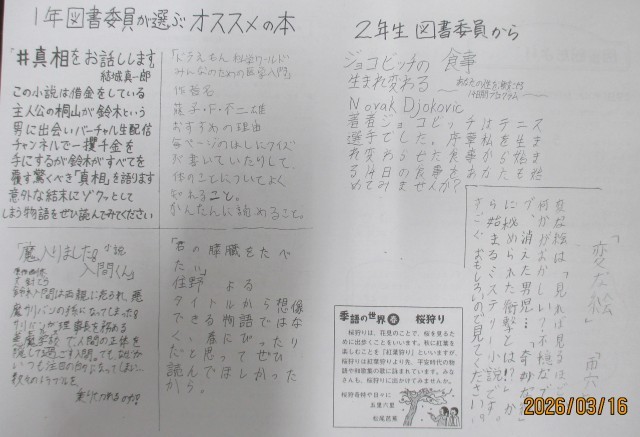 1年図書委員が選ぶオススメの本
「#真相をお話しします」
結城真一郎
この小説は借金をしている
主人公の桐山が鈴木という
男に出会いバーチャル生配信
チャンネルで一攫千金を
手にするが鈴木がすべてを
覆す驚くべき「真相」を語ります
意外な結末にゾクッとして
しまう物語をぜひ読んでみてください
「ドラえもん科学ワールド
みんなのための医学入門」
作者名
藤子・F・不二雄
おすすめの理由
毎ページのはしにクイズ
が書いていたりして、
体のことについてよく
知れること。
かんたんに読めること。
「魔入りました!入間くん」
小説
鈴木入間は両親に売られ、悪
魔サリバンの孫になってしまう。
サリバンが理事長を務める
悪魔学校で人間の正体を
隠して過ごす入間。でも、なぜか
いつも注目の的になってしまい…
「君の膵臓をたべ
たい」
住野 よる
タイトルから想像
できる物語ではな
く、春にぴったり
だと思ってぜひ
読んでほしかった
から。
2年生図書委員から
ジョコビッチの食事
生まれ変わる
〜あなたの体を劇的に変える
14日間プログラム〜
Novak Djokovic
著者ジョコビッチはテニス
選手でした。序章私を生ま
れ変わらせた食事から始ま
る14日の食事をあなたも始
めてみませんか?
「変な絵」 雨穴
季語の世界 春 桜狩り
桜狩りは、花見のことで、桜を見るため
に出歩くことをいいます。秋に紅葉を
楽しむことを「紅葉狩り」といいますが、
桜狩りは紅葉狩りより先、平安時代の物
語や和歌集の歌に詠まれています。みな
さんも、桜狩りに出かけてみませんか。
桜狩奇特や日々に
五里六里
松尾芭蕉
2026/03/16